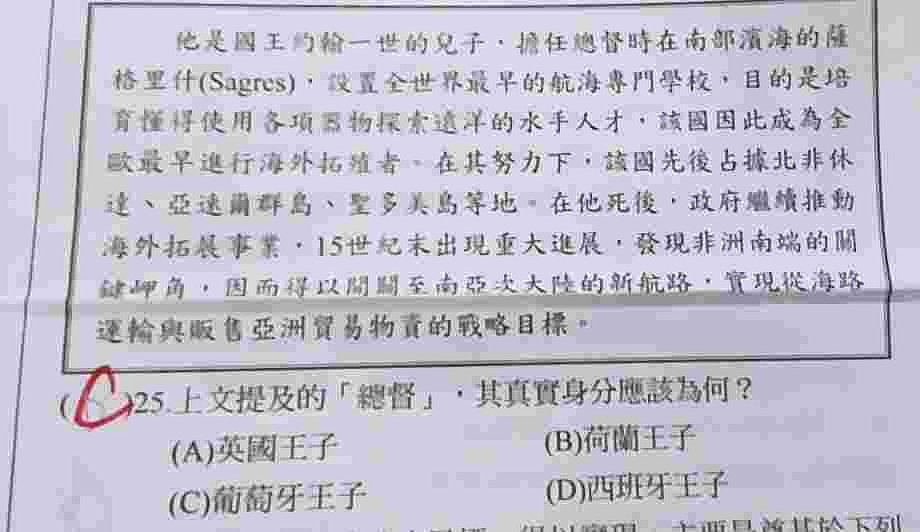 他是國王約翰一世的兒子,擔任總督時在南部濱海的薩
格里什(Sagres),設置全世界最早的航海專門學校,目的是培
育懂得使用各項器物探索遠洋的水手人才,該國因此成為全
歐最早進行海外拓殖者。在其努力下,該國先後占據北非休
達、亞速爾群島、聖多美島等地。在他死後,政府繼續推動
海外拓展事業,15世紀末出現重大進展,發現非洲南端的關
鍵岬角,因而得以開闢至南亞次大陸的新航路,實現從海路
運輸與販售亞洲貿易物資的戰略目標。
(C)25.上文提及的「總督」,其真實身分應該為何?
(A)英國王子 (B)荷蘭王子
(C)葡萄牙王子 (D)西班牙王子